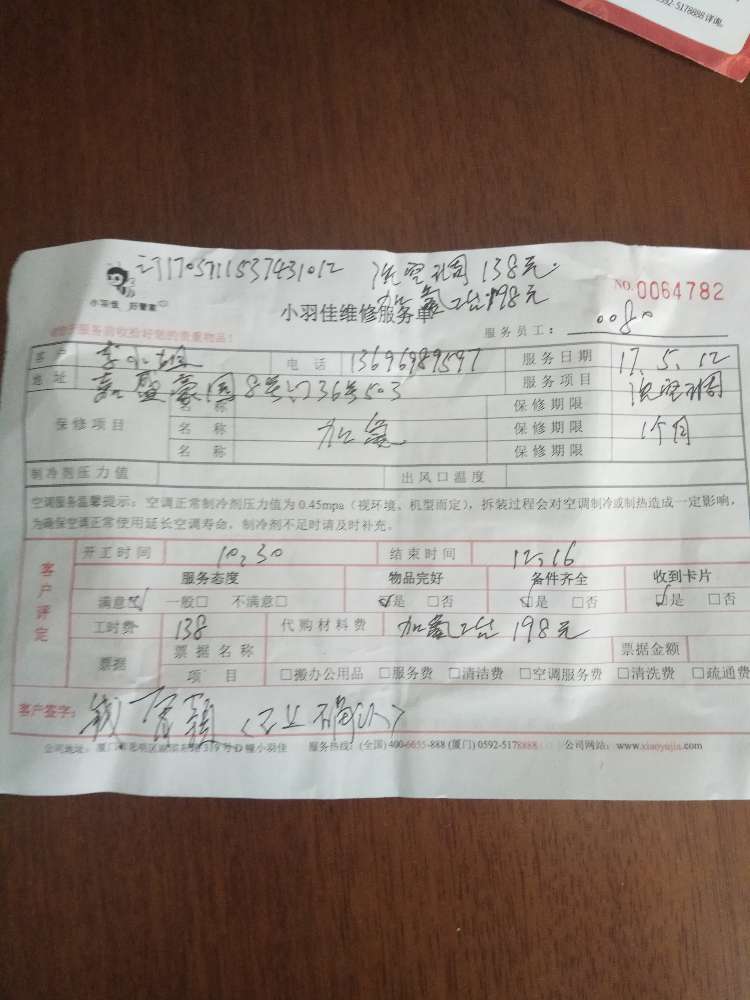 0592-5178888 详询。
订1705711537431012 洗空调 138元.
加氟2台198元
NO. 0064782
小羽佳 好管家
小羽佳维修服务单
服务员工： 0080
服务前收拾好您的贵重物品！
客户 李小姐 电话 13696989597 服务日期 17.5.12
地址 嘉盈豪园8号门36号503 服务项目 洗空调
保修项目
名称 保修期限
名称 加氟 保修期限 1个月
名称 保修期限
制冷剂压力值 出风口温度
空调服务温馨提示：空调正常制冷剂压力值为 0.45mpa（视环境、机型而定），拆装过程会对空调制冷或制热造成一定影响，
为确保空调正常使用延长空调寿命，制冷剂不足时请及时补充。
客户评定
开工时间 10.30 结束时间 12.16
服务态度 物品完好 备件齐全 收到卡片
满意☑ 一般□ 不满意□ ☑是 □否 ☑是 □否 ☑是 □否
工时费 138 代购材料费 加氟2台 198元
票据 票据名称 票据金额
项目 □搬办公用品 □服务费 □清洁费 □空调服务费 □清洗费 □疏通费
客户签字：
公司地址：厦门市 519号D幢小羽佳 服务热线：(全国) 400-6655-888 (厦门) 0592-5178888 公司网站：www.xiaoyujia.com